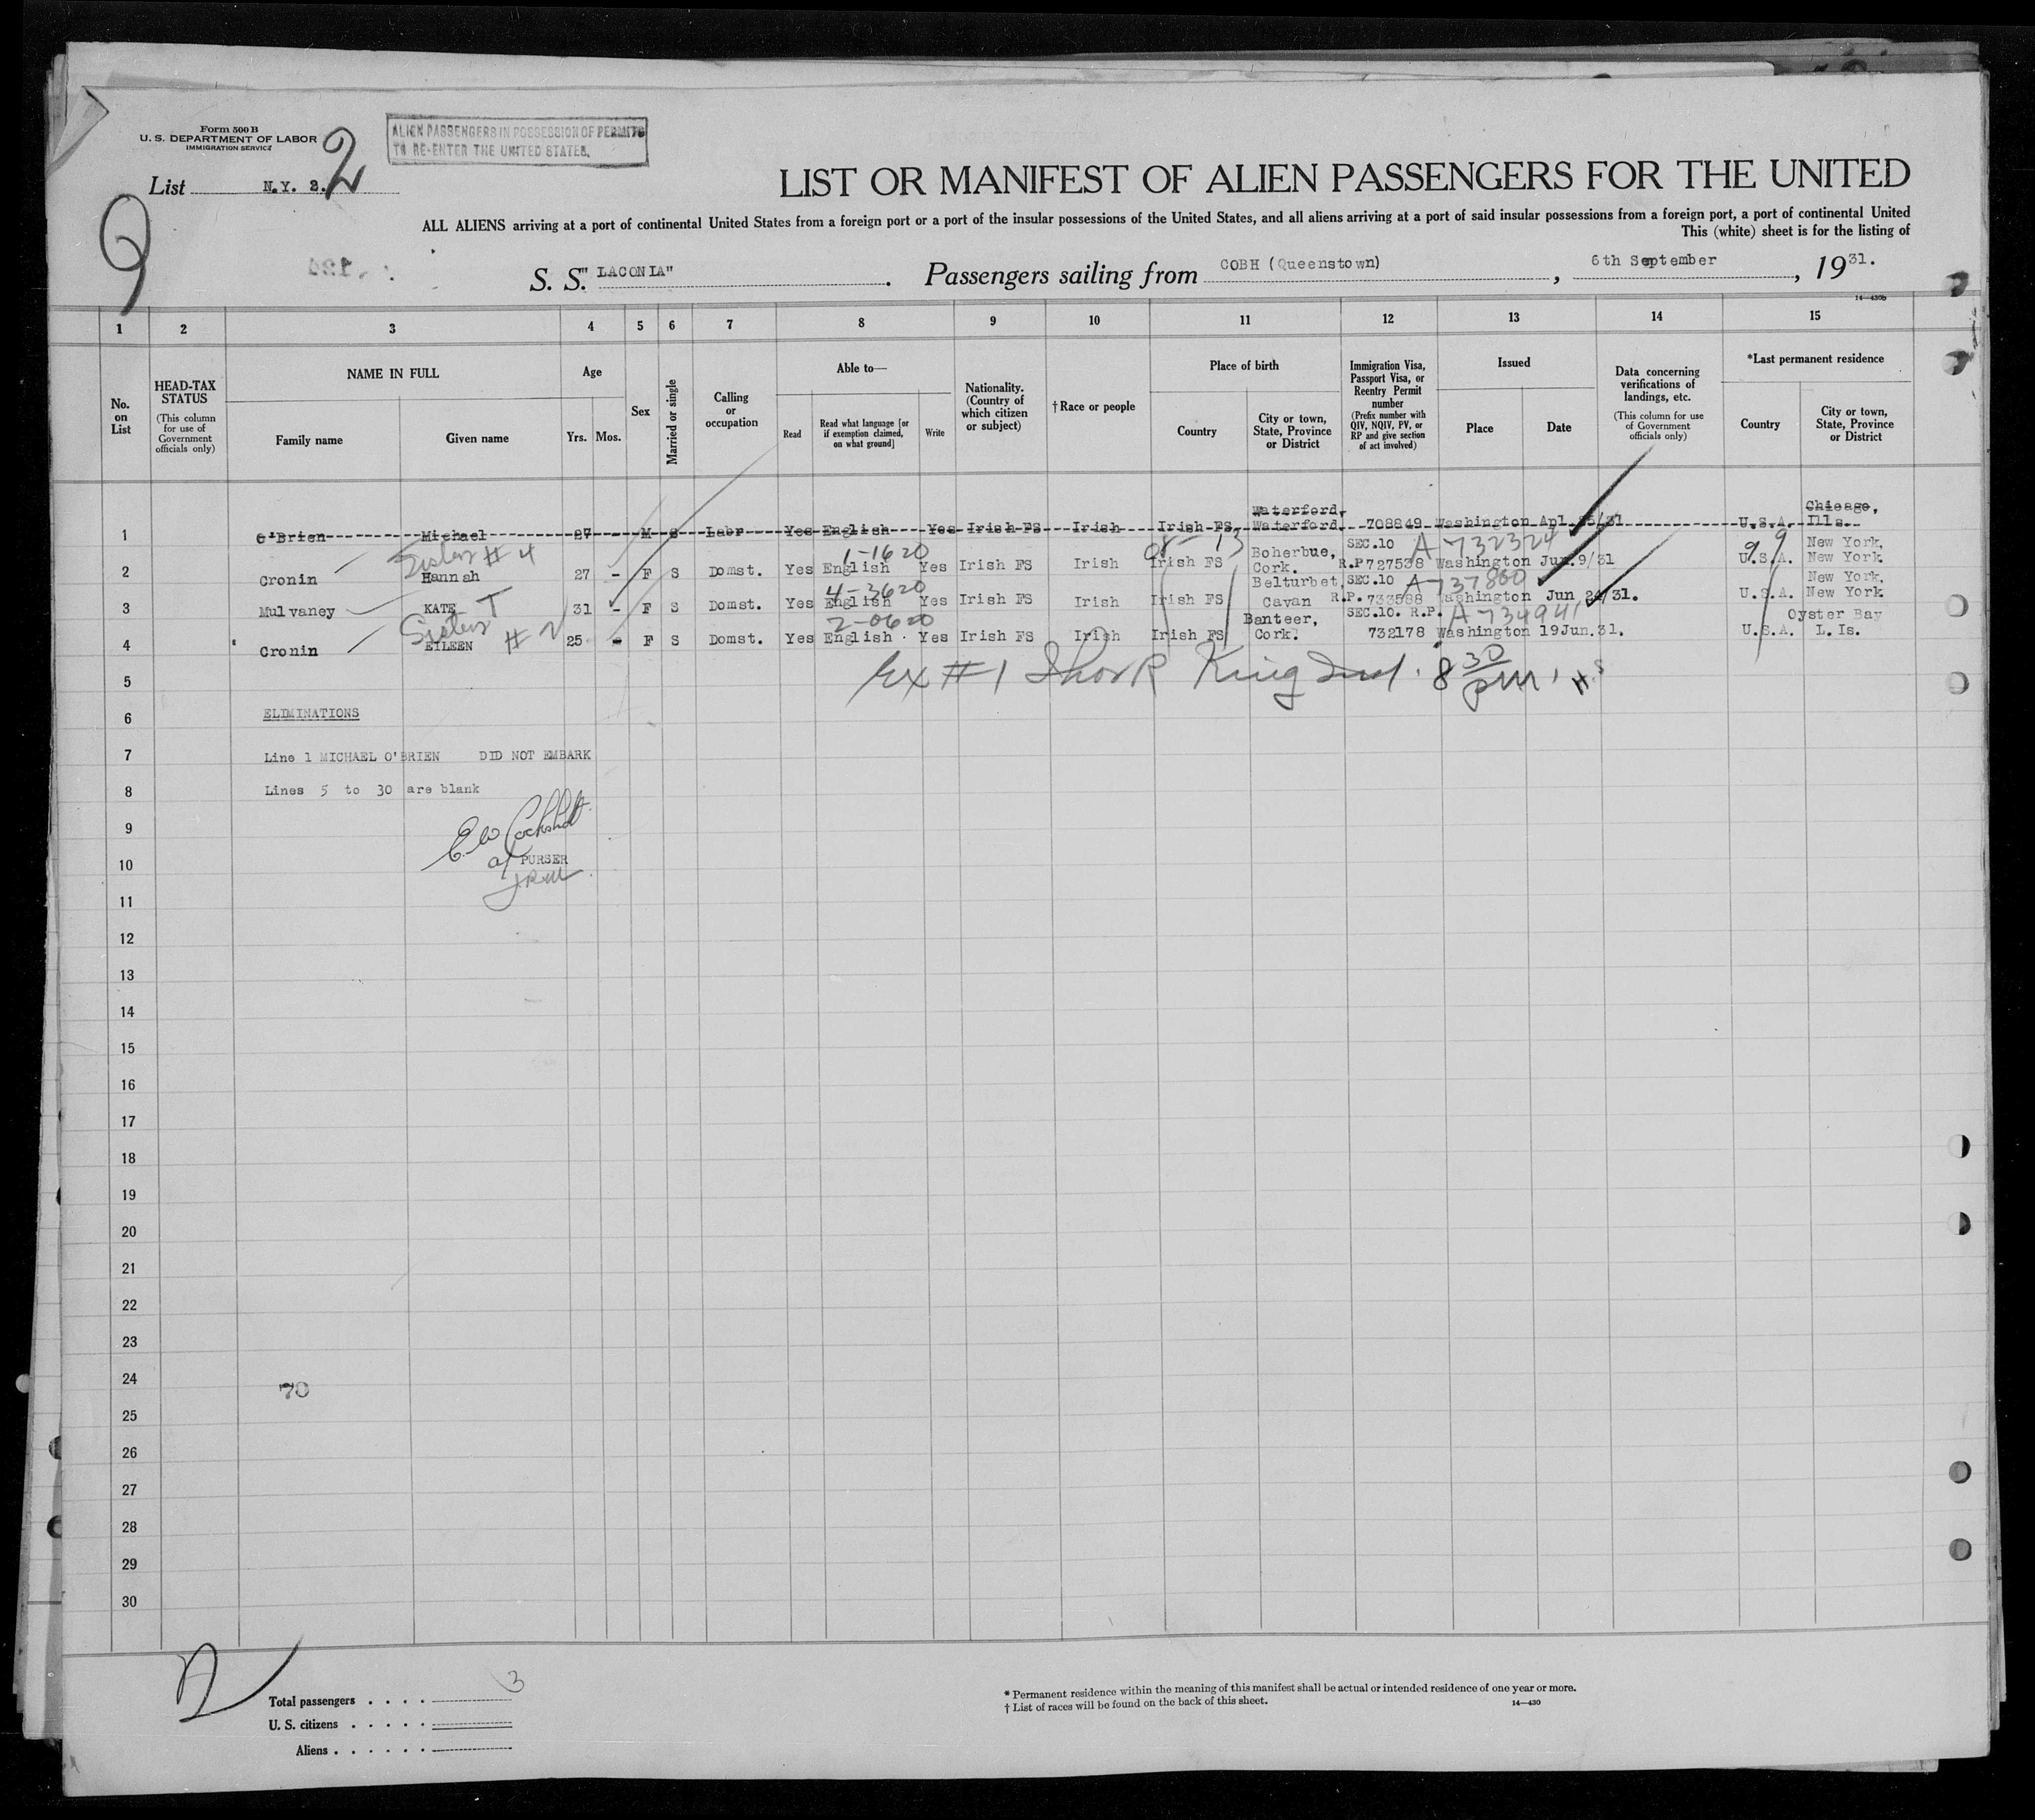 Form 500 B
U. S. DEPARTMENT OF LABOR
IMMIGRATION SERVICE
2
ALIEN PASSENGERS IN POSSESSION OF PERMITS
TO RE-ENTER THE UNITED STATES.
List N.Y. 2.
9
LIST OR MANIFEST OF ALIEN PASSENGERS FOR THE UNITED
ALL ALIENS arriving at a port of continental United States from a foreign port or a port of the insular possessions of the United States, and all aliens arriving at a port of said insular possessions from a foreign port, a port of continental United
This (white) sheet is for the listing of
S. S. "LACONIA". Passengers sailing from COBH (Queenstown), 6th September, 1931.
14—430b
1 2 3 4 5 6 7 8 9 10 11 12 13 14 15
No. on List
HEAD-TAX STATUS
(This column for use of Government officials only)
NAME IN FULL
Family name Given name
Age
Yrs. Mos.
Sex
Married or single
Calling or occupation
Able to—
Read Read what language [or if exemption claimed, on what ground] Write
Nationality. (Country of which citizen or subject)
†Race or people
Place of birth
Country City or town, State, Province or District
Immigration Visa, Passport Visa, or Reentry Permit number
(Prefix number with QIV, NQIV, PV, or RP and give section of act involved)
Issued
Place Date
Data concerning verifications of landings, etc.
(This column for use of Government officials only)
*Last permanent residence
Country City or town, State, Province or District
Waterford, Chicago,
1 O'Brien Michael 27 M S Labr Yes English Yes Irish FS Irish Irish FS Waterford 708849 Washington Apl 25/31 U.S.A. Ills.
Sister #4 1-1620 Boherbue, SEC.10 A 732324 99 New York,
2 Cronin Hannah 27 - F S Domst. Yes English Yes Irish FS Irish Irish FS Cork. R.P 727538 Washington Jun.9/31 U.S.A. New York.
4-3620 Belturbet, SEC.10 A 737860 New York,
3 Mulvaney KATE T 31 - F S Domst. Yes English Yes Irish FS Irish Irish FS Cavan R.P. 733588 Washington Jun 24/31. U.S.A. New York
Sister #2 2-0620 Banteer, SEC.10. R.P. A 734941 Oyster Bay
4 Cronin EILEEN 25 - F S Domst. Yes English Yes Irish FS Irish Irish FS Cork. 732178 Washington 19Jun.31. U.S.A. L. Is.
Ex #1 King 8 30 pm
5
6 ELIMINATIONS
7 Line 1 MICHAEL O'BRIEN DID NOT EMBARK
8 Lines 5 to 30 are blank
9
10 PURSER
11
12
13
14
15
16
17
18
19
20
21
22
23
24
70
25
26
27
28
29
30
Total passengers . . . . 3
U. S. citizens . . . . .
Aliens . . . . . .
* Permanent residence within the meaning of this manifest shall be actual or intended residence of one year or more.
† List of races will be found on the back of this sheet.
14—430